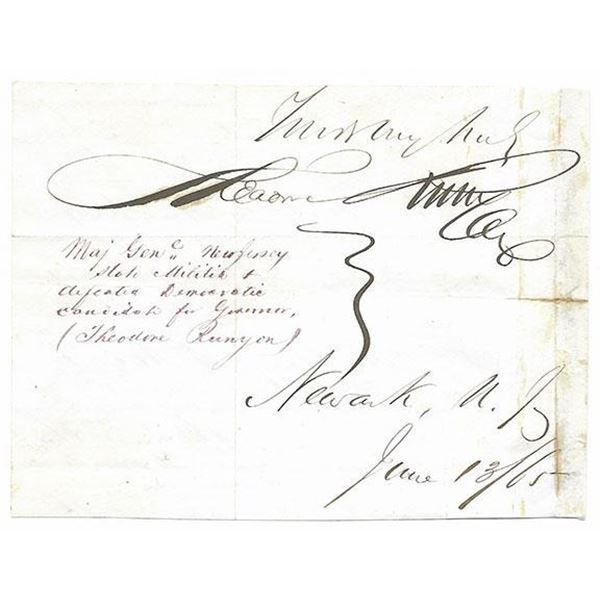 Truly Yours
Theodore Runyon
Maj Genl New Jersey
State Militia &
defeated Democratic
candidate for Governor,
(Theodore Runyon)
Newark, N. J.
June 13/65